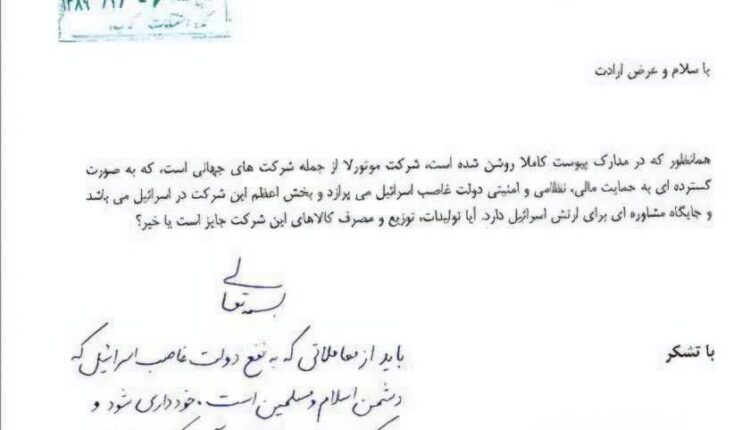 ۱۳۸۹
با سلام و عرض ارادت
همانطور که در مدارک پیوست کاملا روشن شده است، شرکت موتورلا از جمله شرکت های جهانی است، که به صورت
گسترده ای به حمایت مالی، نظامی و امنیتی دولت غاصب اسرائیل می پرازد و بخش اعظم این شرکت در اسرائیل می باشد
و جایگاه مشاوره ای برای ارتش اسرائیل دارد. آیا تولیدات، توزیع و مصرف کالاهای این شرکت جایز است یا خیر؟
بسمه تعالی
با تشکر
باید از معاملاتی که به نفع دولت غاصب اسرائیل که
دشمن اسلام و مسلمین است، خودداری شود و